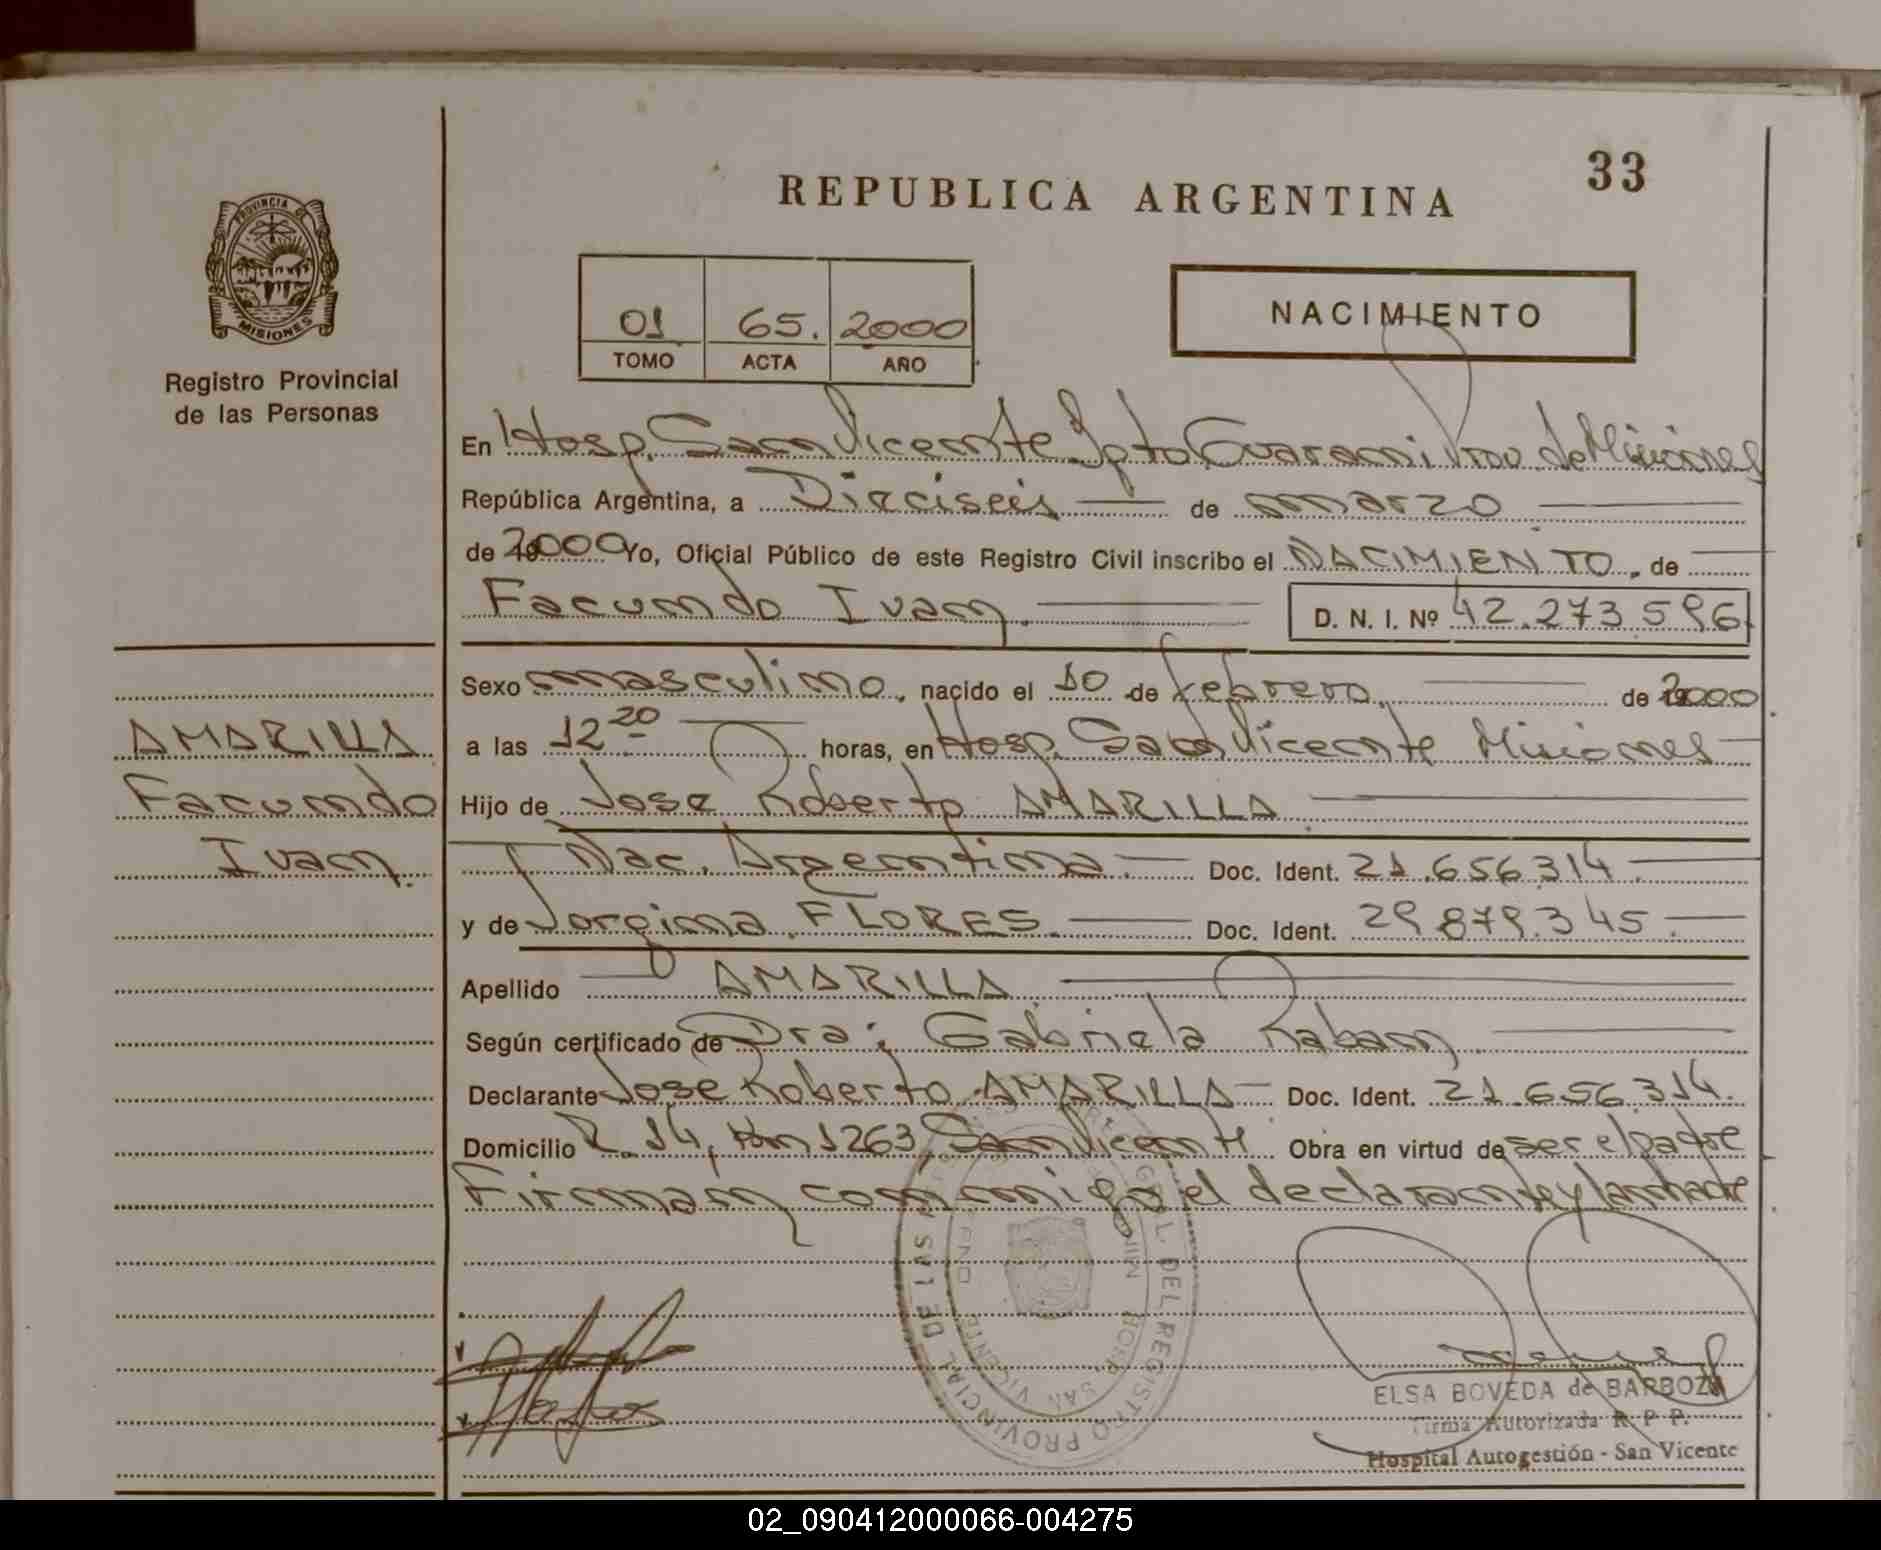 33
REPUBLICA ARGENTINA
PROVINCIA DE
MISIONES
Registro Provincial
de las Personas
01 65. 2000
TOMO ACTA AÑO
NACIMIENTO
En Hosp. San Vicente Dpto Guarani Prov. de Misiones
República Argentina, a Dieciseis de marzo
de 2000 Yo, Oficial Público de este Registro Civil inscribo el NACIMIENTO, de
Facundo Ivan. D. N. I. Nº 42.273.596
Sexo masculino, nacido el 10 de febrero, de 2000
a las 12 20 horas, en Hosp. San Vicente Misiones
Hijo de Jose Roberto AMARILLA
Nac. Argentina. Doc. Ident. 21.656.314
y de Jorgina FLORES. Doc. Ident. 29.879.345.
Apellido AMARILLA
Según certificado de Dra: Gabriela Raban
Declarante Jose Roberto AMARILLA Doc. Ident. 21.656.314.
Domicilio R. 14, Km 1263, San Vicente Obra en virtud de ser el padre
Firman conmigo el declarante y la madre
AMARILLA
Facundo
Ivan.
REGISTRO PROVINCIAL DE LAS
HOSP. SAN VICENTE
ELSA BOVEDA de BARBOZA
Firma Autorizada R. P. P.
Hospital Autogestión - San Vicente
02_090412000066-004275